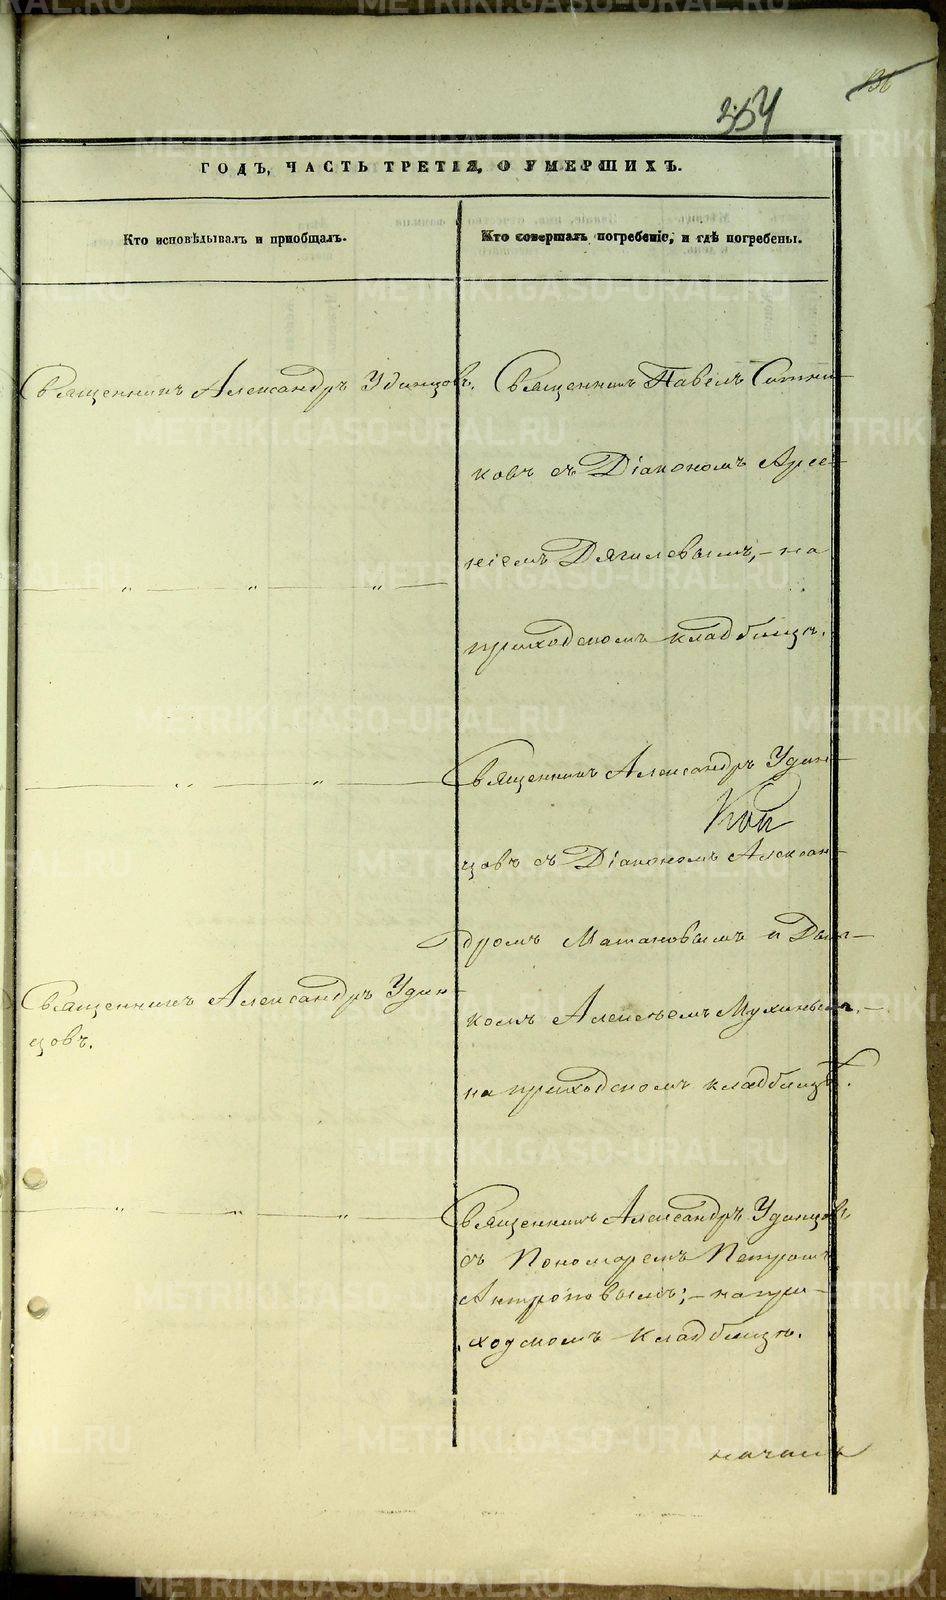 354
136
ГОДЪ, ЧАСТЬ ТРЕТІЯ, О УМЕРШИХЪ.
Кто исповѣдывалъ и пріобщалъ.
Кто совершалъ погребеніе, и гдѣ погребены.
Священникъ Александръ Удинцовъ.
— „ — „ — „ —
— „ — „ —
Священникъ Александръ Удин-
цовъ.
— „ — „ — „ —
Священникъ Павелъ Ситни-
ковъ съ Діакономъ Арсе-
ніемъ Дягилевымъ, — на
приходскомъ кладбищѣ.
Священникъ Александръ Удин-
цовъ съ Діакономъ Алексан-
дромъ Матановымъ и Дьяч-
комъ Алексѣемъ Мухинымъ, —
на приходскомъ кладбищѣ.
Священникъ Александръ Удинцовъ
съ Пономаремъ Петромъ
Антроповымъ; — на при-
ходскомъ кладбищѣ.
METRIKI.GASO-URAL.RU